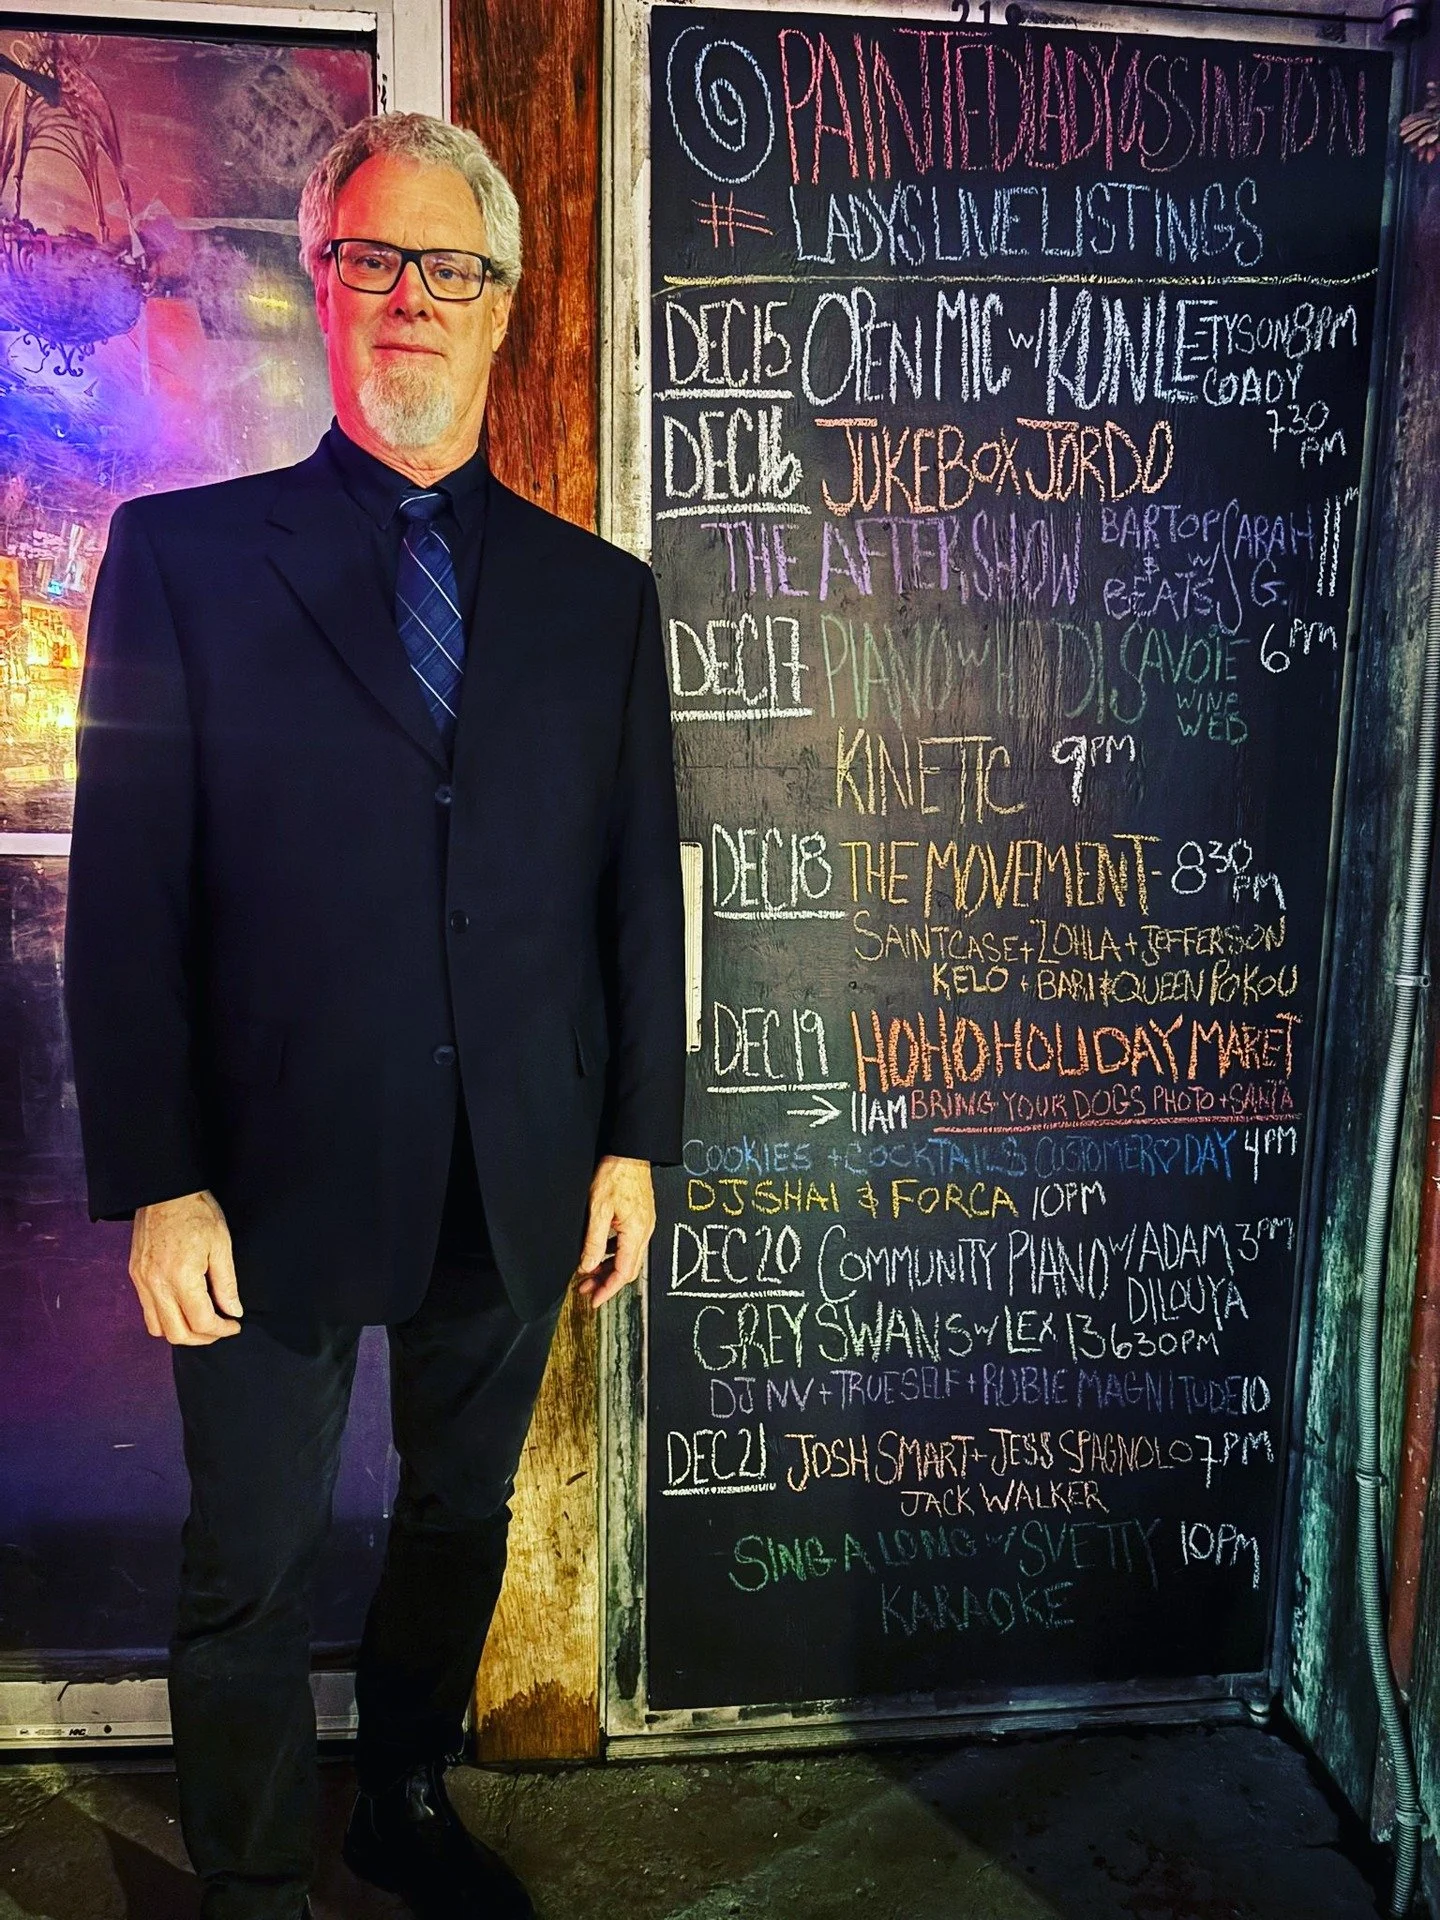 218
@PAINTEDLADYOSSINGTON
# LADYSLIVELISTINGS
DEC 15 OPEN MIC w/ KUNLE 8PM
TYSON COADY 730 PM
DEC 16 JUKEBOX JORDO
THE AFTER SHOW BARTOP & BEATS w/ SARAH G.
DEC 17 PIANO w/ DISAVOIE 6PM
WINE WED
KINETIC 9PM
DEC 18 THE MOVEMENT - 830 PM
SAINTCASE + ZOHLA + JEFFERSON
KELO + BARI & QUEEN POKOU
DEC 19 HOHOHOLIDAY MARKET
→ 11AM BRING YOUR DOGS PHOTO + SANTA
COOKIES + COCKTAILS CUSTOMER ♡ DAY 4PM
DJ SHAI & FORCA 10PM
DEC 20 COMMUNITY PIANO w/ ADAM DILOUYA 3PM
GREY SWANS w/ LEX 13 630PM
DJ NV + TRUESELF + RUBIE MAGNITUDE 10
DEC 21 JOSH SMART + JESS SPAGNOLO 7PM
JACK WALKER
SING A LONG w/ SVETTY 10PM
KARAOKE